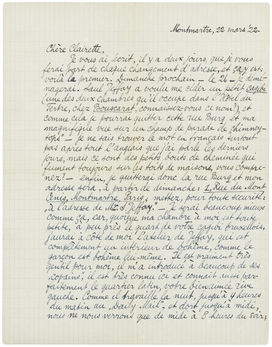 Montmartre, 22 mars '22
Chère Clairette,
Je vous ai écrit, il y a deux jours, que je vous
ferai part de chaque changement d'adresse, et çay est-
voilà la premier. Dimanche prochain - le 26 - je démé-
nagerai. Paul Jaffay a voulu me céder un petit
(une des deux chambres qu'il occupe dans l'Hôtel du
Tertre, chez Bouscarat, connaissez vous ce nom?) et
comme cela je pourrai quitter cette rue Burq et ma
magnifique vue sur un champ de
- Je ne sais trouver le mot en français surtout
pas après tout l'anglais que j'ai parlé les derniers
jours, mais ce sont des petits bouts de cheminée que
fument toujours sur les toits de maisons, vous compre-
nez? - enfin, je quitterai donc la rue Burq et mon
adresse sera, à partir de dimanche: 2, Rue du Mont
Cenis, Montmartre, Paris, mettez pour toute sécurité
à l'adresse de M. Jaffay. - Je serai beaucoup mieux
comme ça, car, quoique ma chambre à moi est toute
petite, à peu près le quart de votre
j'aurai à côté de moi l'atelier de Jaffay, qui est
complètement un intérieur de bohème, comme le
garçon est bohème lui-même. Il est vraiment très
gentil pour moi, il m'a introduit à beaucoup de ses
copains, il est très connu ici et connait aussi par-
faitement le quartier latin, votre bien aimée rive
gauche. Comme il travaille la nuit, jusqu'à 4 heures
du matin, au Daily Mail et dort jusqu'à midi,
nous ne nous verrons que de midi à 8 heures du soir,